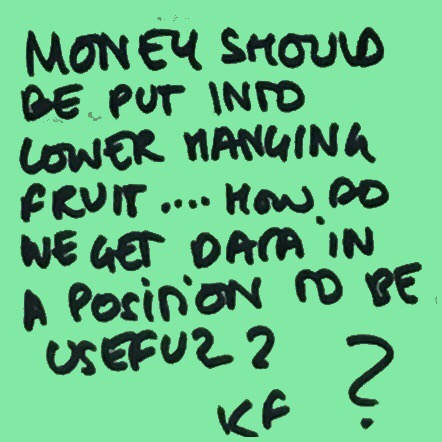 MONEY SHOULD
BE PUT INTO
LOWER HANGING
FRUIT .... HOW DO
WE GET DATA IN
A POSITION TO BE
USEFUL ? ?
KF